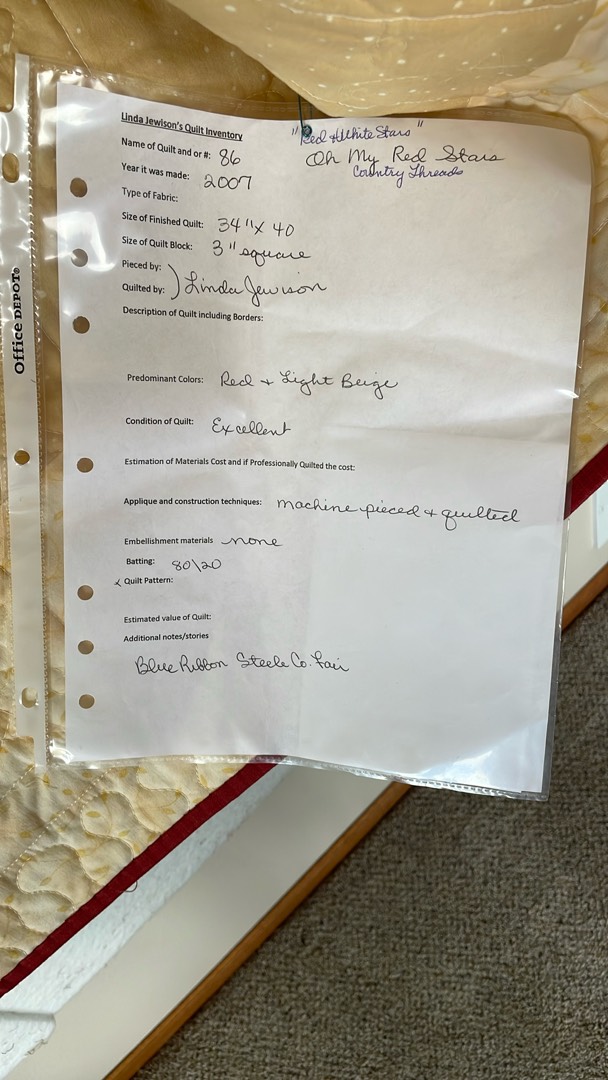 Linda Jewison's Quilt Inventory
"Red & White Stars"
Name of Quilt and or #: 86 Oh My Red Stars
Country Threads
Year it was made: 2007
Type of Fabric:
Size of Finished Quilt: 34" X 40
Size of Quilt Block: 3" square
Pieced by:
Quilted by: ) Linda Jewison
Description of Quilt including Borders:
Predominant Colors: Red + Light Beige
Condition of Quilt: Excellent
Estimation of Materials Cost and if Professionally Quilted the cost:
Applique and construction techniques: machine pieced + quilted
Embellishment materials none
Batting: 80\20
x Quilt Pattern:
Estimated value of Quilt:
Additional notes/stories
Blue Ribbon Steele Co. Fair
Office DEPOT®